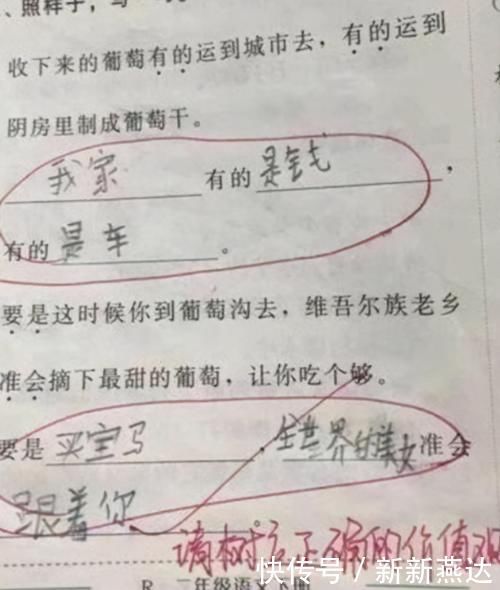 、照样子，写一
收下来的葡萄有的运到城市去，有的运到
阴房里制成葡萄干。
我家有的是钱，
有的是车。
要是这时候你到葡萄沟去，维吾尔族老乡
准会摘下最甜的葡萄，让你吃个够。
要是买宝马，全世界的美女准会
跟着你。
请树立正确的价值观
R 二年级语文下册
快传号/新新燕达